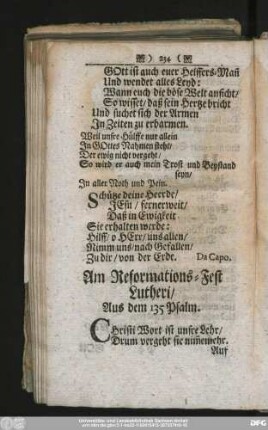 ) 234 (
GOtt ist auch euer Helffers-Mañ
Und wendet alles Leyd:
Wann euch die böse Welt anficht/
So wisset/ daß sein Hertze bricht
Und suchet sich der Armen
In Zeiten zu erbarmen.
Weil unsre Hülffe nur allein
In GOttes Nahmen steht/
Der ewig nicht vergeht/
So wird er auch mein Trost und Beystand
seyn/
In aller Noth und Pein.
Schütze deine Heerde/
JEsu/ fernerweit/
Daß in Ewigkeit
Sie erhalten werde:
Hilff/ o HErr/ uns allen/
Nimm uns/ nach Gefallen/
Zu dir/ von der Erde. Da Capo.
Am Reformations-Fest
Lutheri/
Aus dem 135 Psalm.
Christi Wort ist unsre Lehr/
Drum vergeht sie nim̃ermehr.
Auf